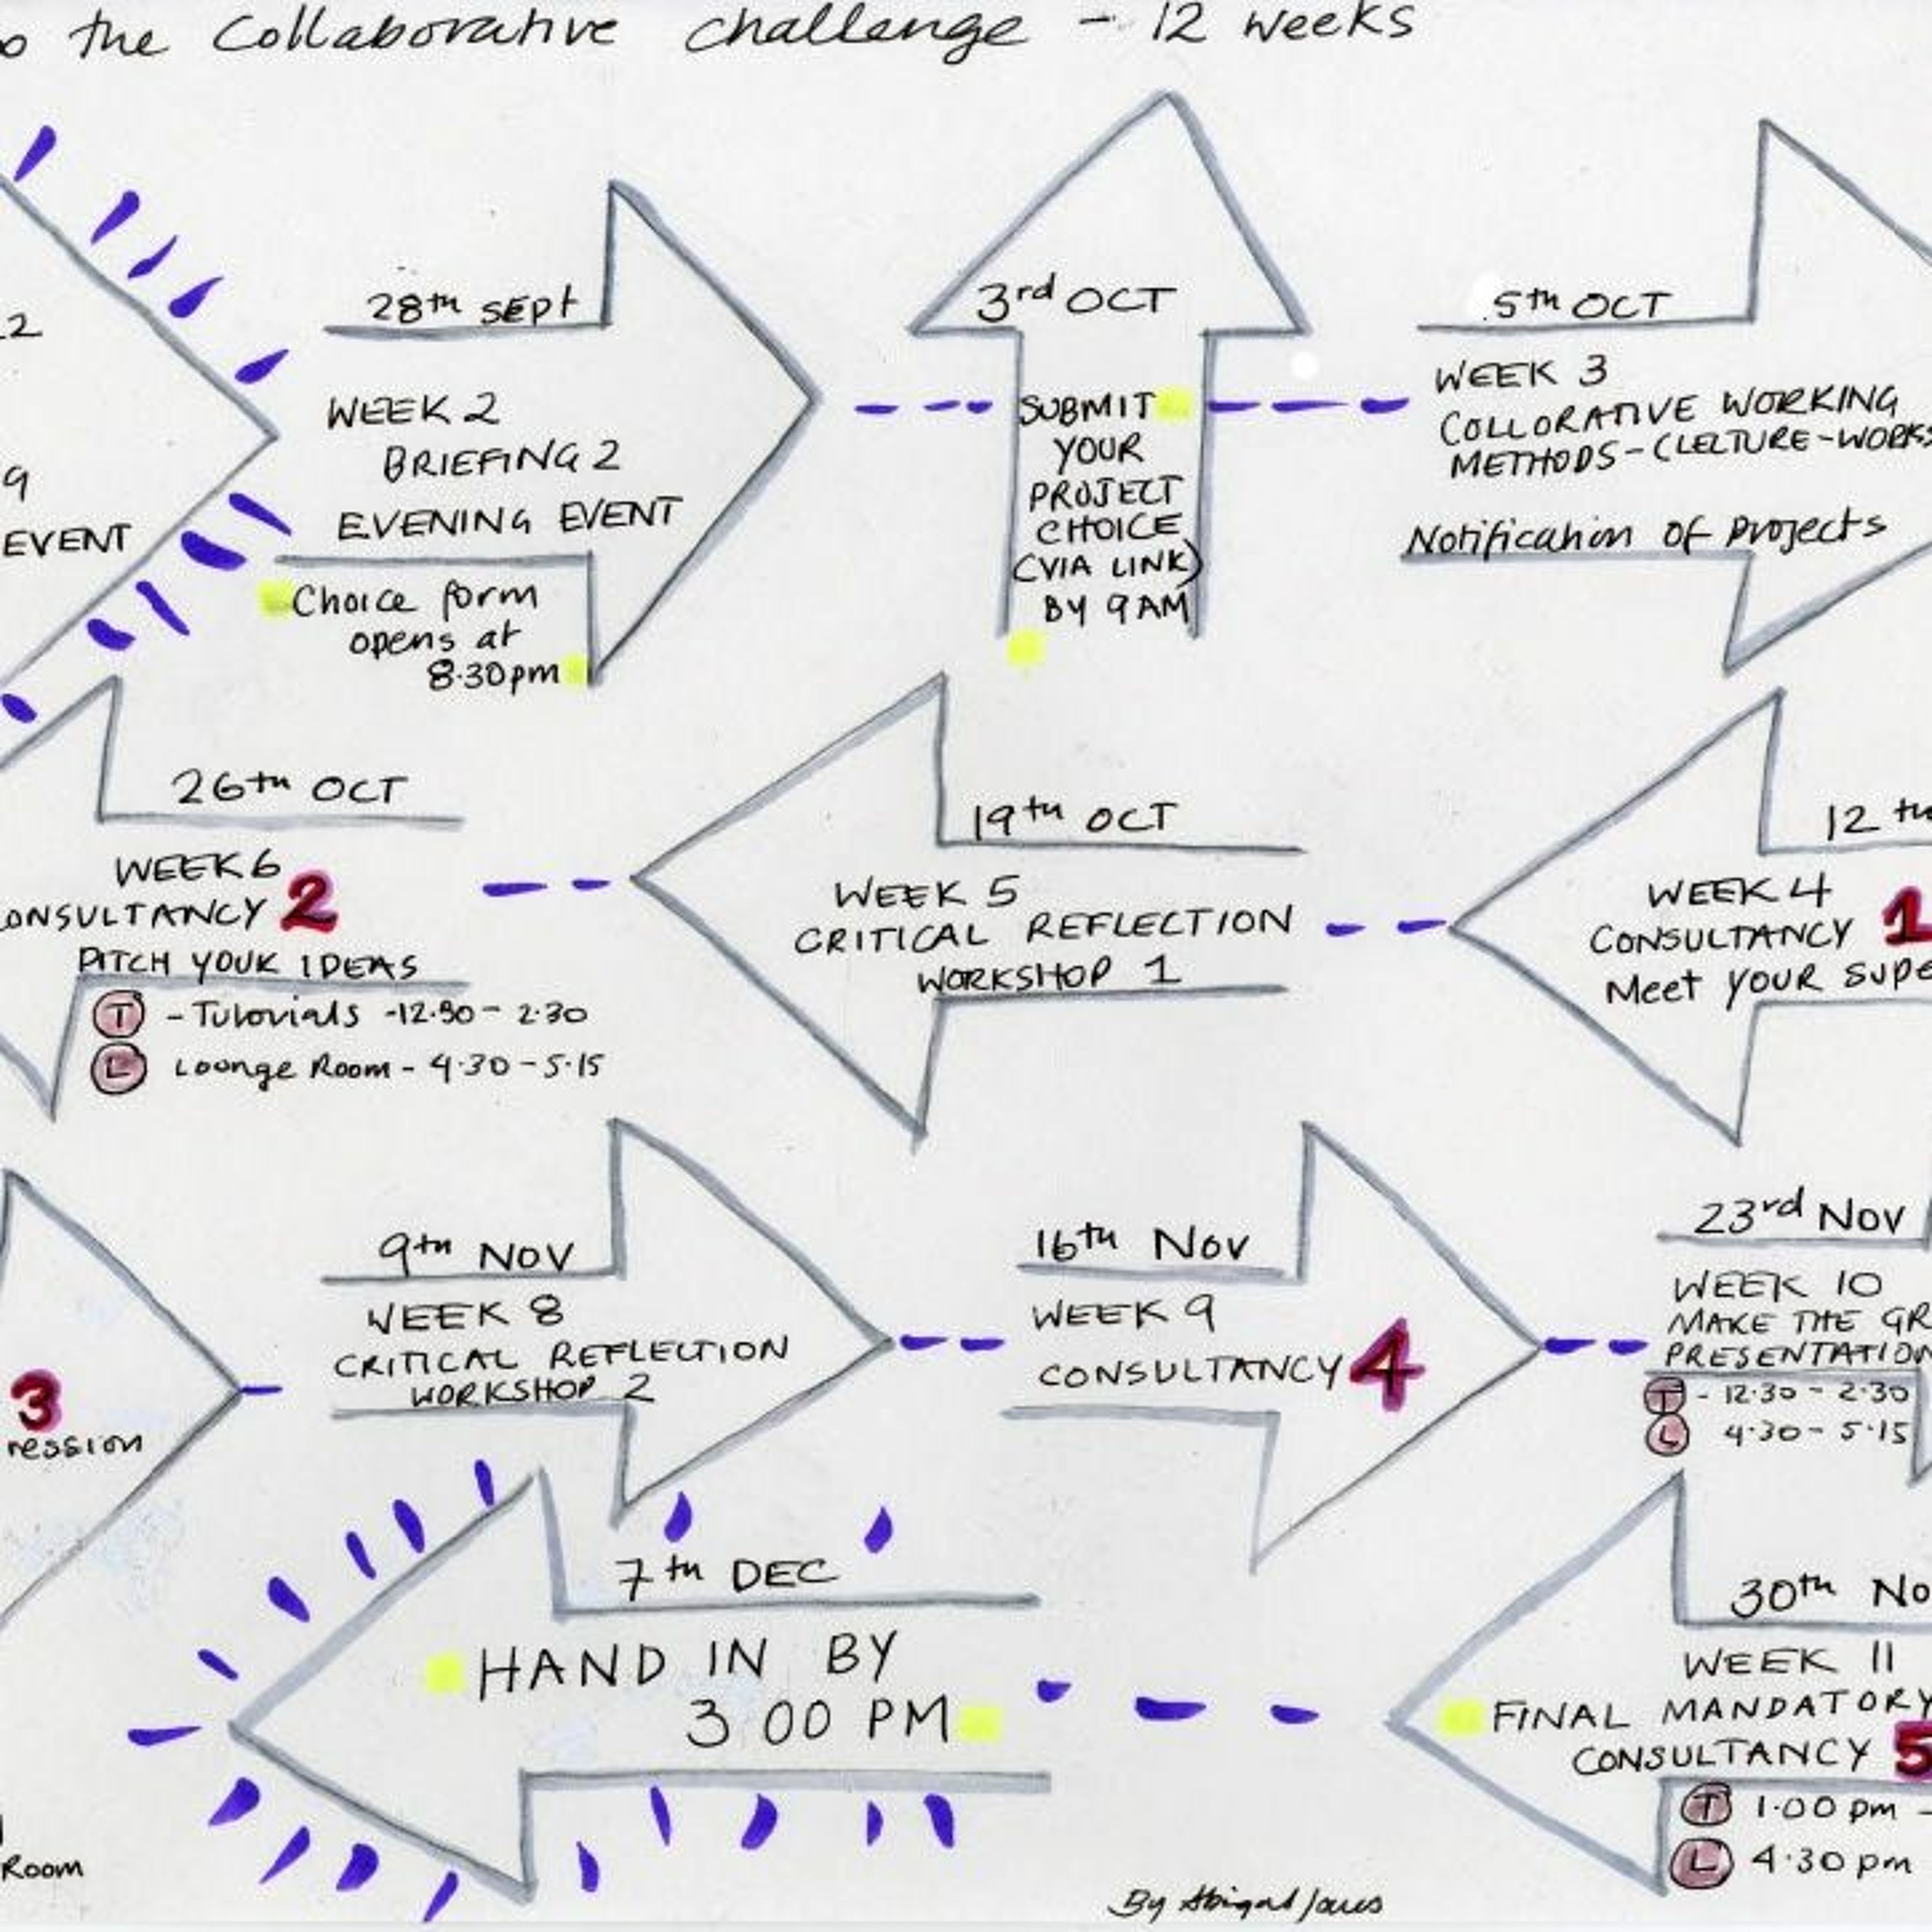 o the Collaborative challenge - 12 weeks
2
9
EVENT
28th sept
WEEK 2
BRIEFING 2
EVENING EVENT
Choice form
opens at
8.30pm
3rd OCT
SUBMIT
YOUR
PROJECT
CHOICE
(VIA LINK)
BY 9AM
5th OCT
WEEK 3
COLLORATIVE WORKING
METHODS - (LECTURE - WORKS
Notification of projects
26th OCT
WEEK 6
ONSULTANCY 2
PITCH YOUR IDEAS
T - Tutorials - 12.30 - 2.30
L Loonge Room - 4.30 - 5.15
19th OCT
WEEK 5
CRITICAL REFLECTION
WORKSHOP 1
12th
WEEK 4
CONSULTANCY 1
Meet your supe
3
ression
9th NOV
WEEK 8
CRITICAL REFLECTION
WORKSHOP 2
16th Nov
WEEK 9
CONSULTANCY 4
23rd Nov
WEEK 10
MAKE THE GR
PRESENTATION
T - 12.30 - 2.30
L 4.30 - 5.15
7th DEC
HAND IN BY
3 00 PM
30th No
WEEK 11
FINAL MANDATORY
CONSULTANCY 5
T 1.00 pm -
L 4.30 pm
Room
By Abigail Jones